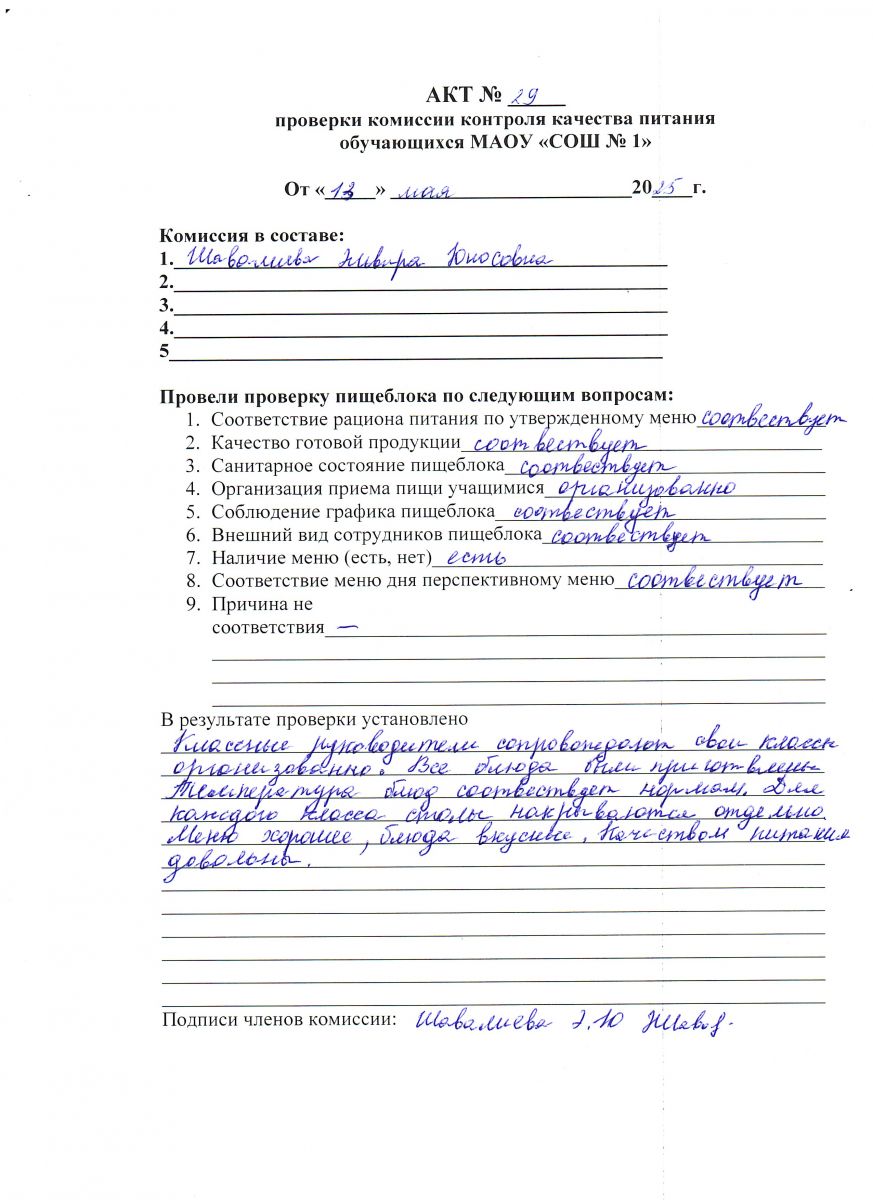 АКТ № 29
проверки комиссии контроля качества питания
обучающихся МАОУ «СОШ № 1»
От « 13 » мая 2025 г.
Комиссия в составе:
1. Шавалиева Юносовна
2.
3.
4.
5
Провели проверку пищеблока по следующим вопросам:
1. Соответствие рациона питания по утвержденному меню соотвествует
2. Качество готовой продукции соотвествует
3. Санитарное состояние пищеблока соотвествует
4. Организация приема пищи учащимися организованно
5. Соблюдение графика пищеблока соотвествует
6. Внешний вид сотрудников пищеблока соотвествует
7. Наличие меню (есть, нет) есть
8. Соответствие меню дня перспективному меню соотвествует
9. Причина не
соответствия —
В результате проверки установлено
Классные руководители свои классы
организованно. Все блюда были приготвлены
Температура блюд соотвествует нормам. Для
каждого класса столы накрываются отдельно.
Меню хорошее, блюда вкусные. Качеством питания
довольны.
Подписи членов комиссии: Шавалиева Э.Ю